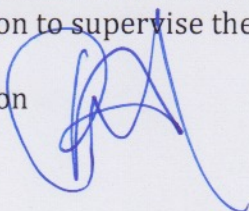 on to supervise the
on